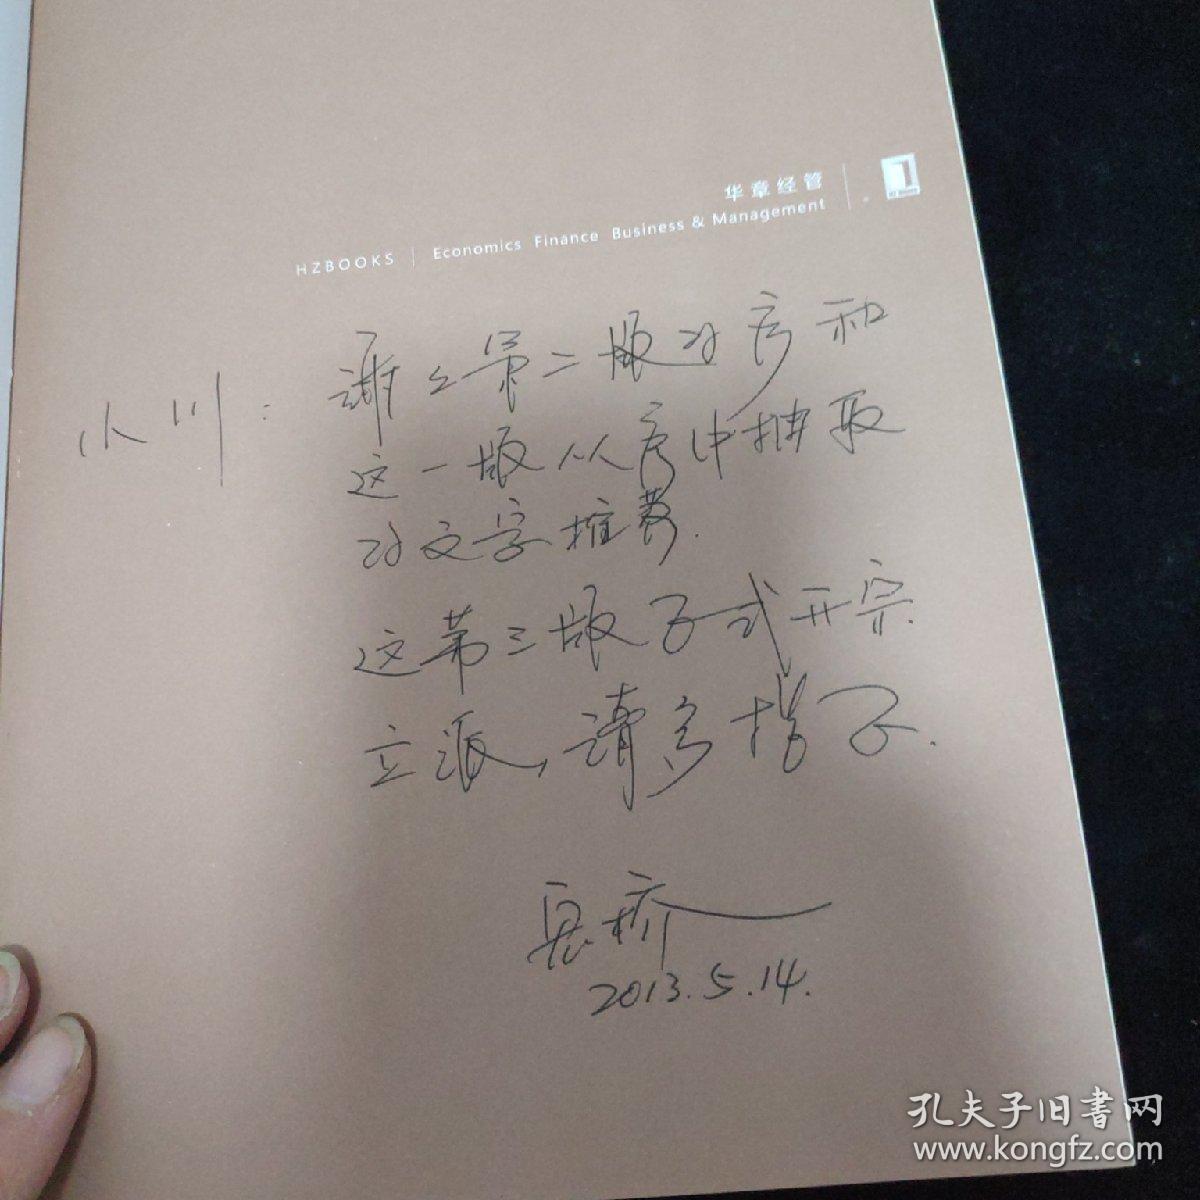 华章经管
HZBOOKS | Economics Finance Business & Management
小川：谢谢第二版的序和
这一版从序中抽取
的文字推荐.
这第三版正式开宗
立派，请多指正.
2013.5.14.
孔夫子旧書网
www.kongfz.com